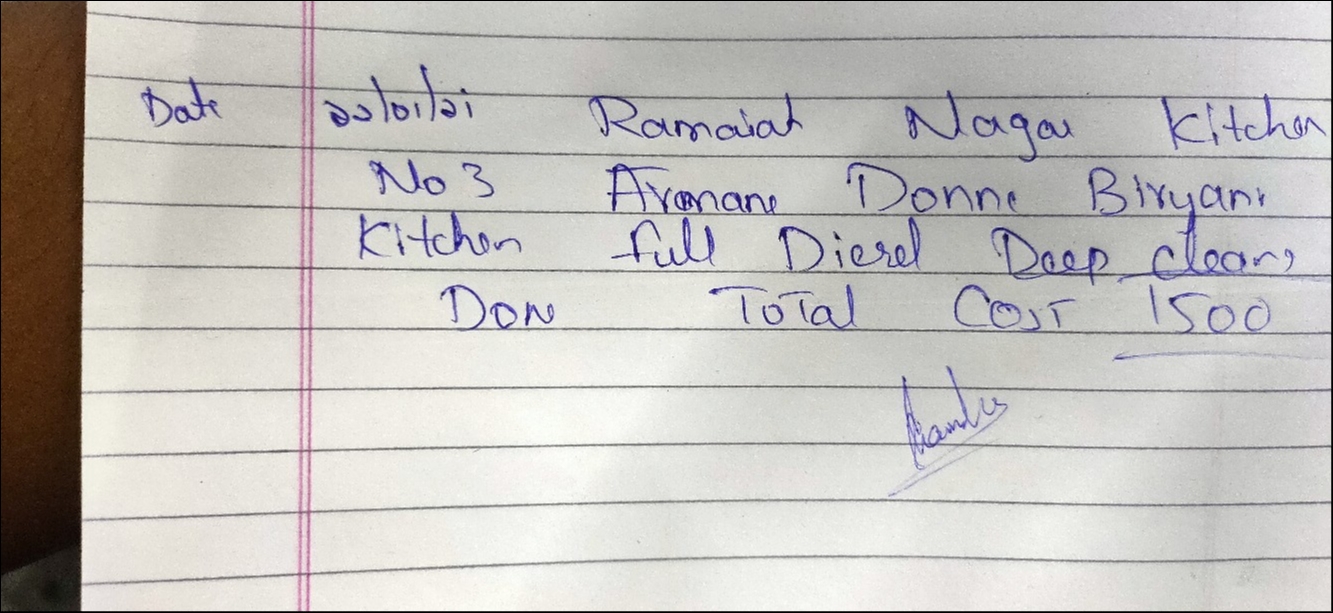 Date 22/01/21 Ramaiah Nagar Kitchen
No 3 Aromane Donne Biryani
Kitchen full Diesel Deep cleang
Don Total Cost 1500